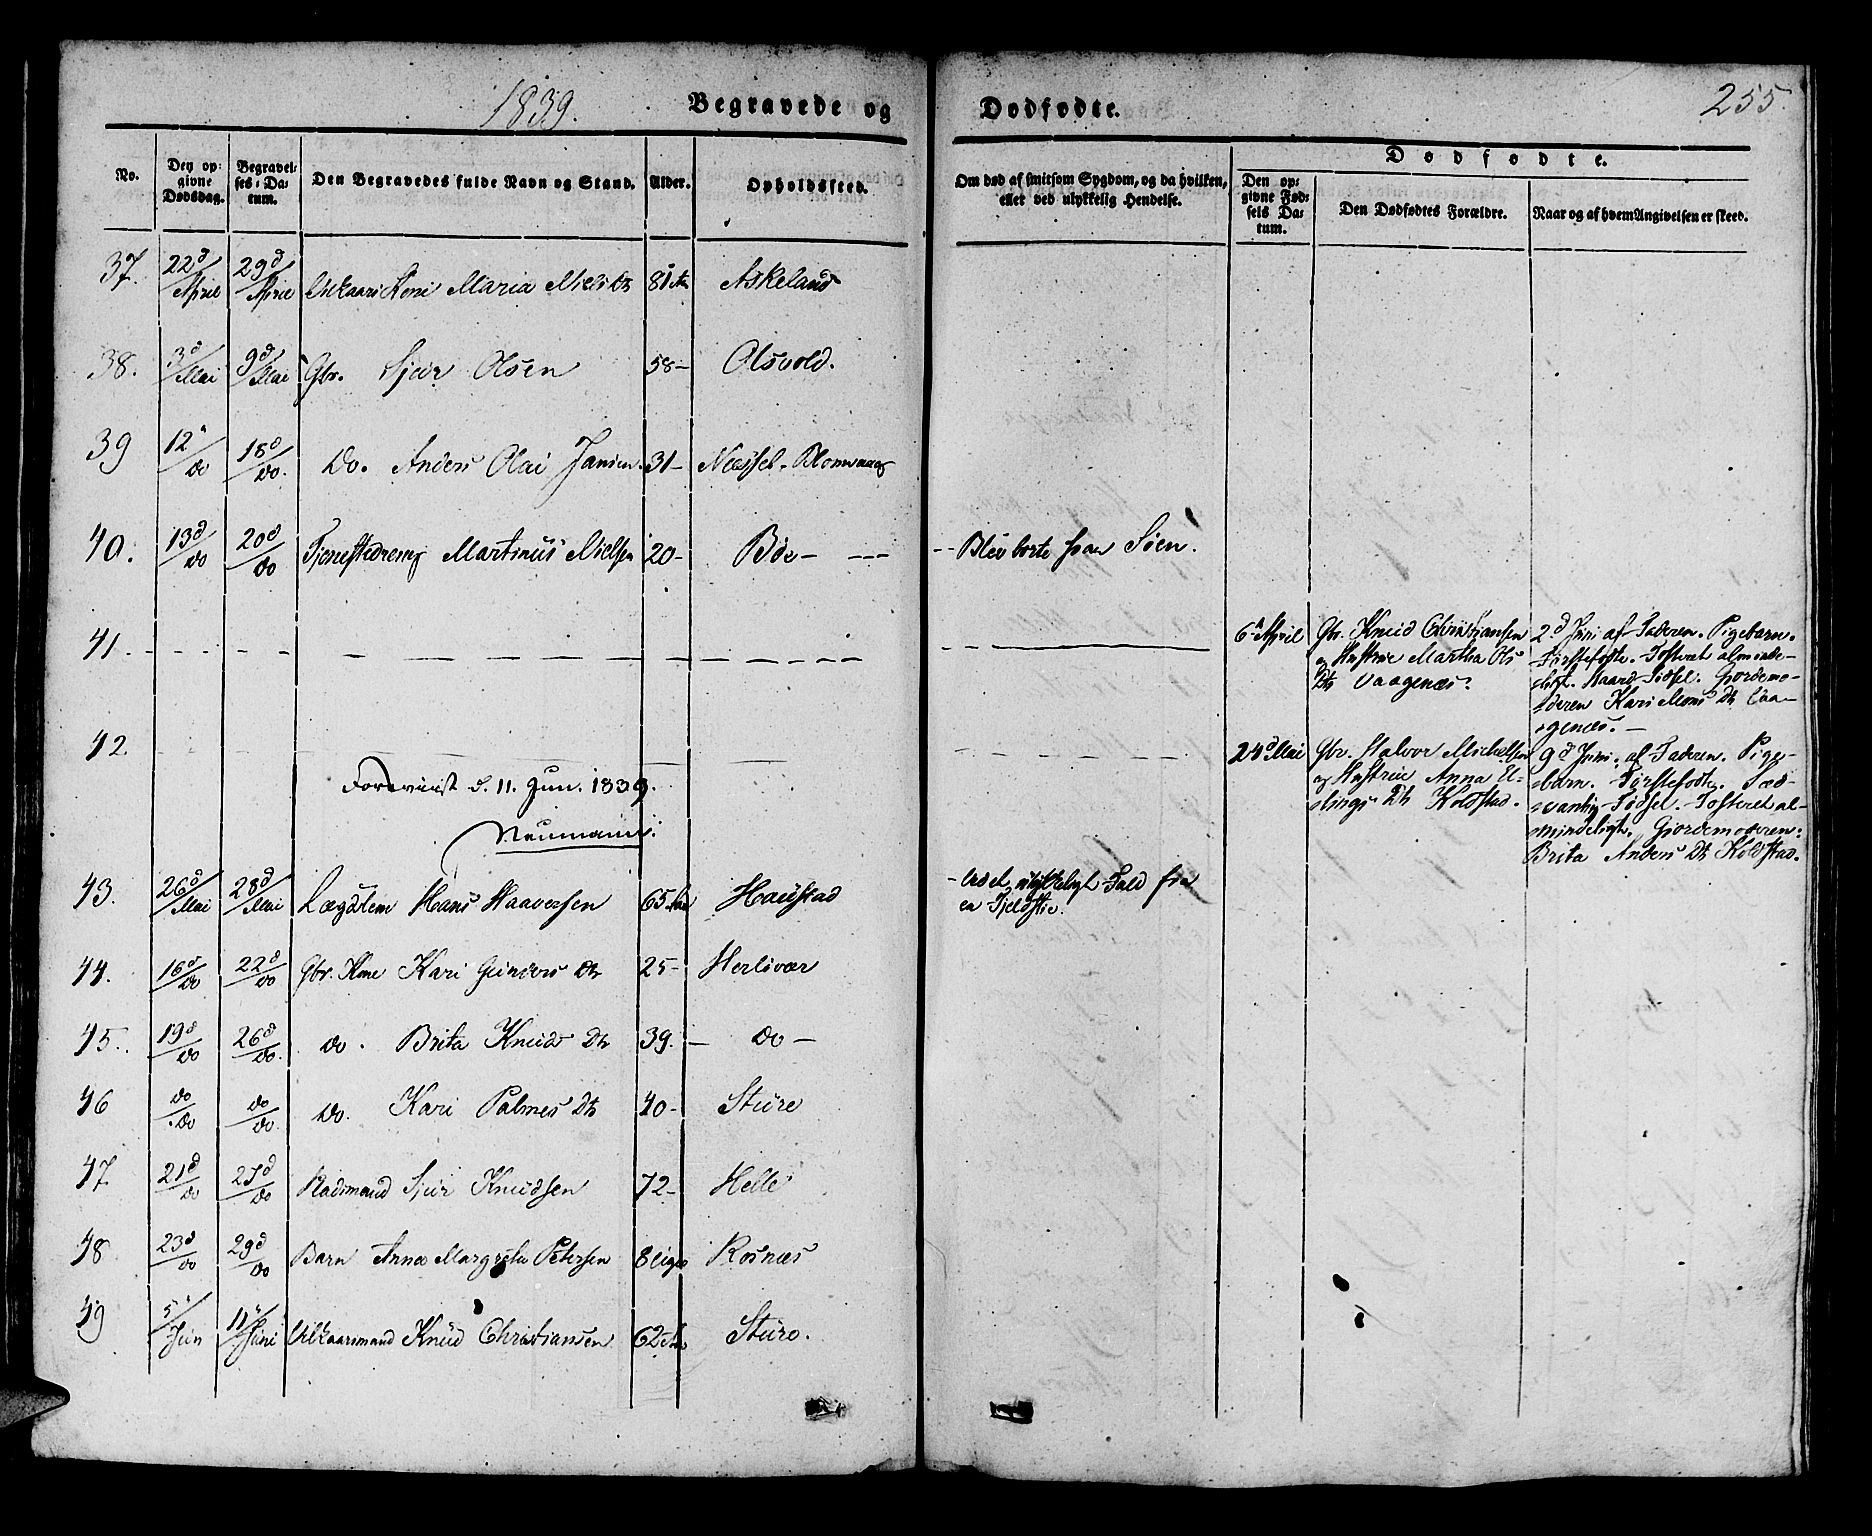 1839.
Begravede og
Dødfødte.
255.
No.
Den op-
givne
Dødsdag.
Begravel-
ses-Da-
tum.
Den Begravedes fulde Navn og Stand.
Alder.
Opholdssted.
Om død af smitsom Sygdom, og da hvilken,
eller ved ulykkelig Hendelse.
Dødfødte.
Den op-
givne Fød-
sels Da-
tum.
Den Dødfødtes Forældre.
Naar og af hvem Angivelsen er skeed.
37. 22d/April 29d/April Kone Maria Niels Dtr 81 Askeland
38. 3d/Mai 9d/Mai Gbr. Sjur Olsen 58- Olsvold.
39 12/do 18d/do. do. Anders Olai Jansen 31- Næssel-Blomvaag
40. 13d/do 20d/do Tjenestedreng Martinus Nielsen 20- Bøe - Blev borte paa Søen.
41. 6 April Gbr. Knud Christiansen
og Hustrue Martha Ols
Dtr Vaagenæs.
2d Juni af Faderen. Pigebarn.
Førstefødte. Fosteret alminde-
ligt. Haard Fødsel. Gjordemo-
deren Kari Mons Dtr Vaa-
genæs.
42. 24d Mai Gbr. Halvor Michelsen
og Hustrue Anna El-
lings Dtr Kolstad.
9d Juni af Faderen. Pige-
barn. Førstefødte. Sæd-
vanlig Fødsel. Fosteret al-
mindeligt. Gjordemoderen:
Brita Anders Dtr Kolstad.
Foreviist d. 11. Jun. 1839.
Neumann.
43. 26d/Mai 28d/Mai Lægdslem Hans Haaversen 65 Haustad
Ved et ulykkeligt Fald fra
en Fjeldstie.
44. 16d/do 22d/do Gbr. Kone Kari Gunders Dtr 25- Herlevær
45. 19d/do 26d/do. do. Brita Knuds Dtr 39. - do -
46 do/do do/do do. Kari Palmes Dtr 40- Sture
47. 21d/do 27d/do Kadsmand Sjur Knudsen 72- Helle
48 23d/do 29d/do Barn Anna Margrethe Petersen 8 Uger Rosnæs
49 5/Jun 11/Juni Vilkaarsmand Knud Christiansen 62 Sture.